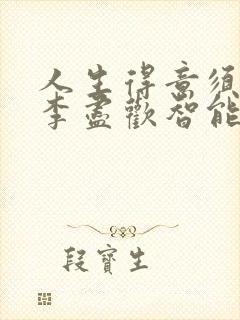 人生得意须
李盡歡智能
段寶生